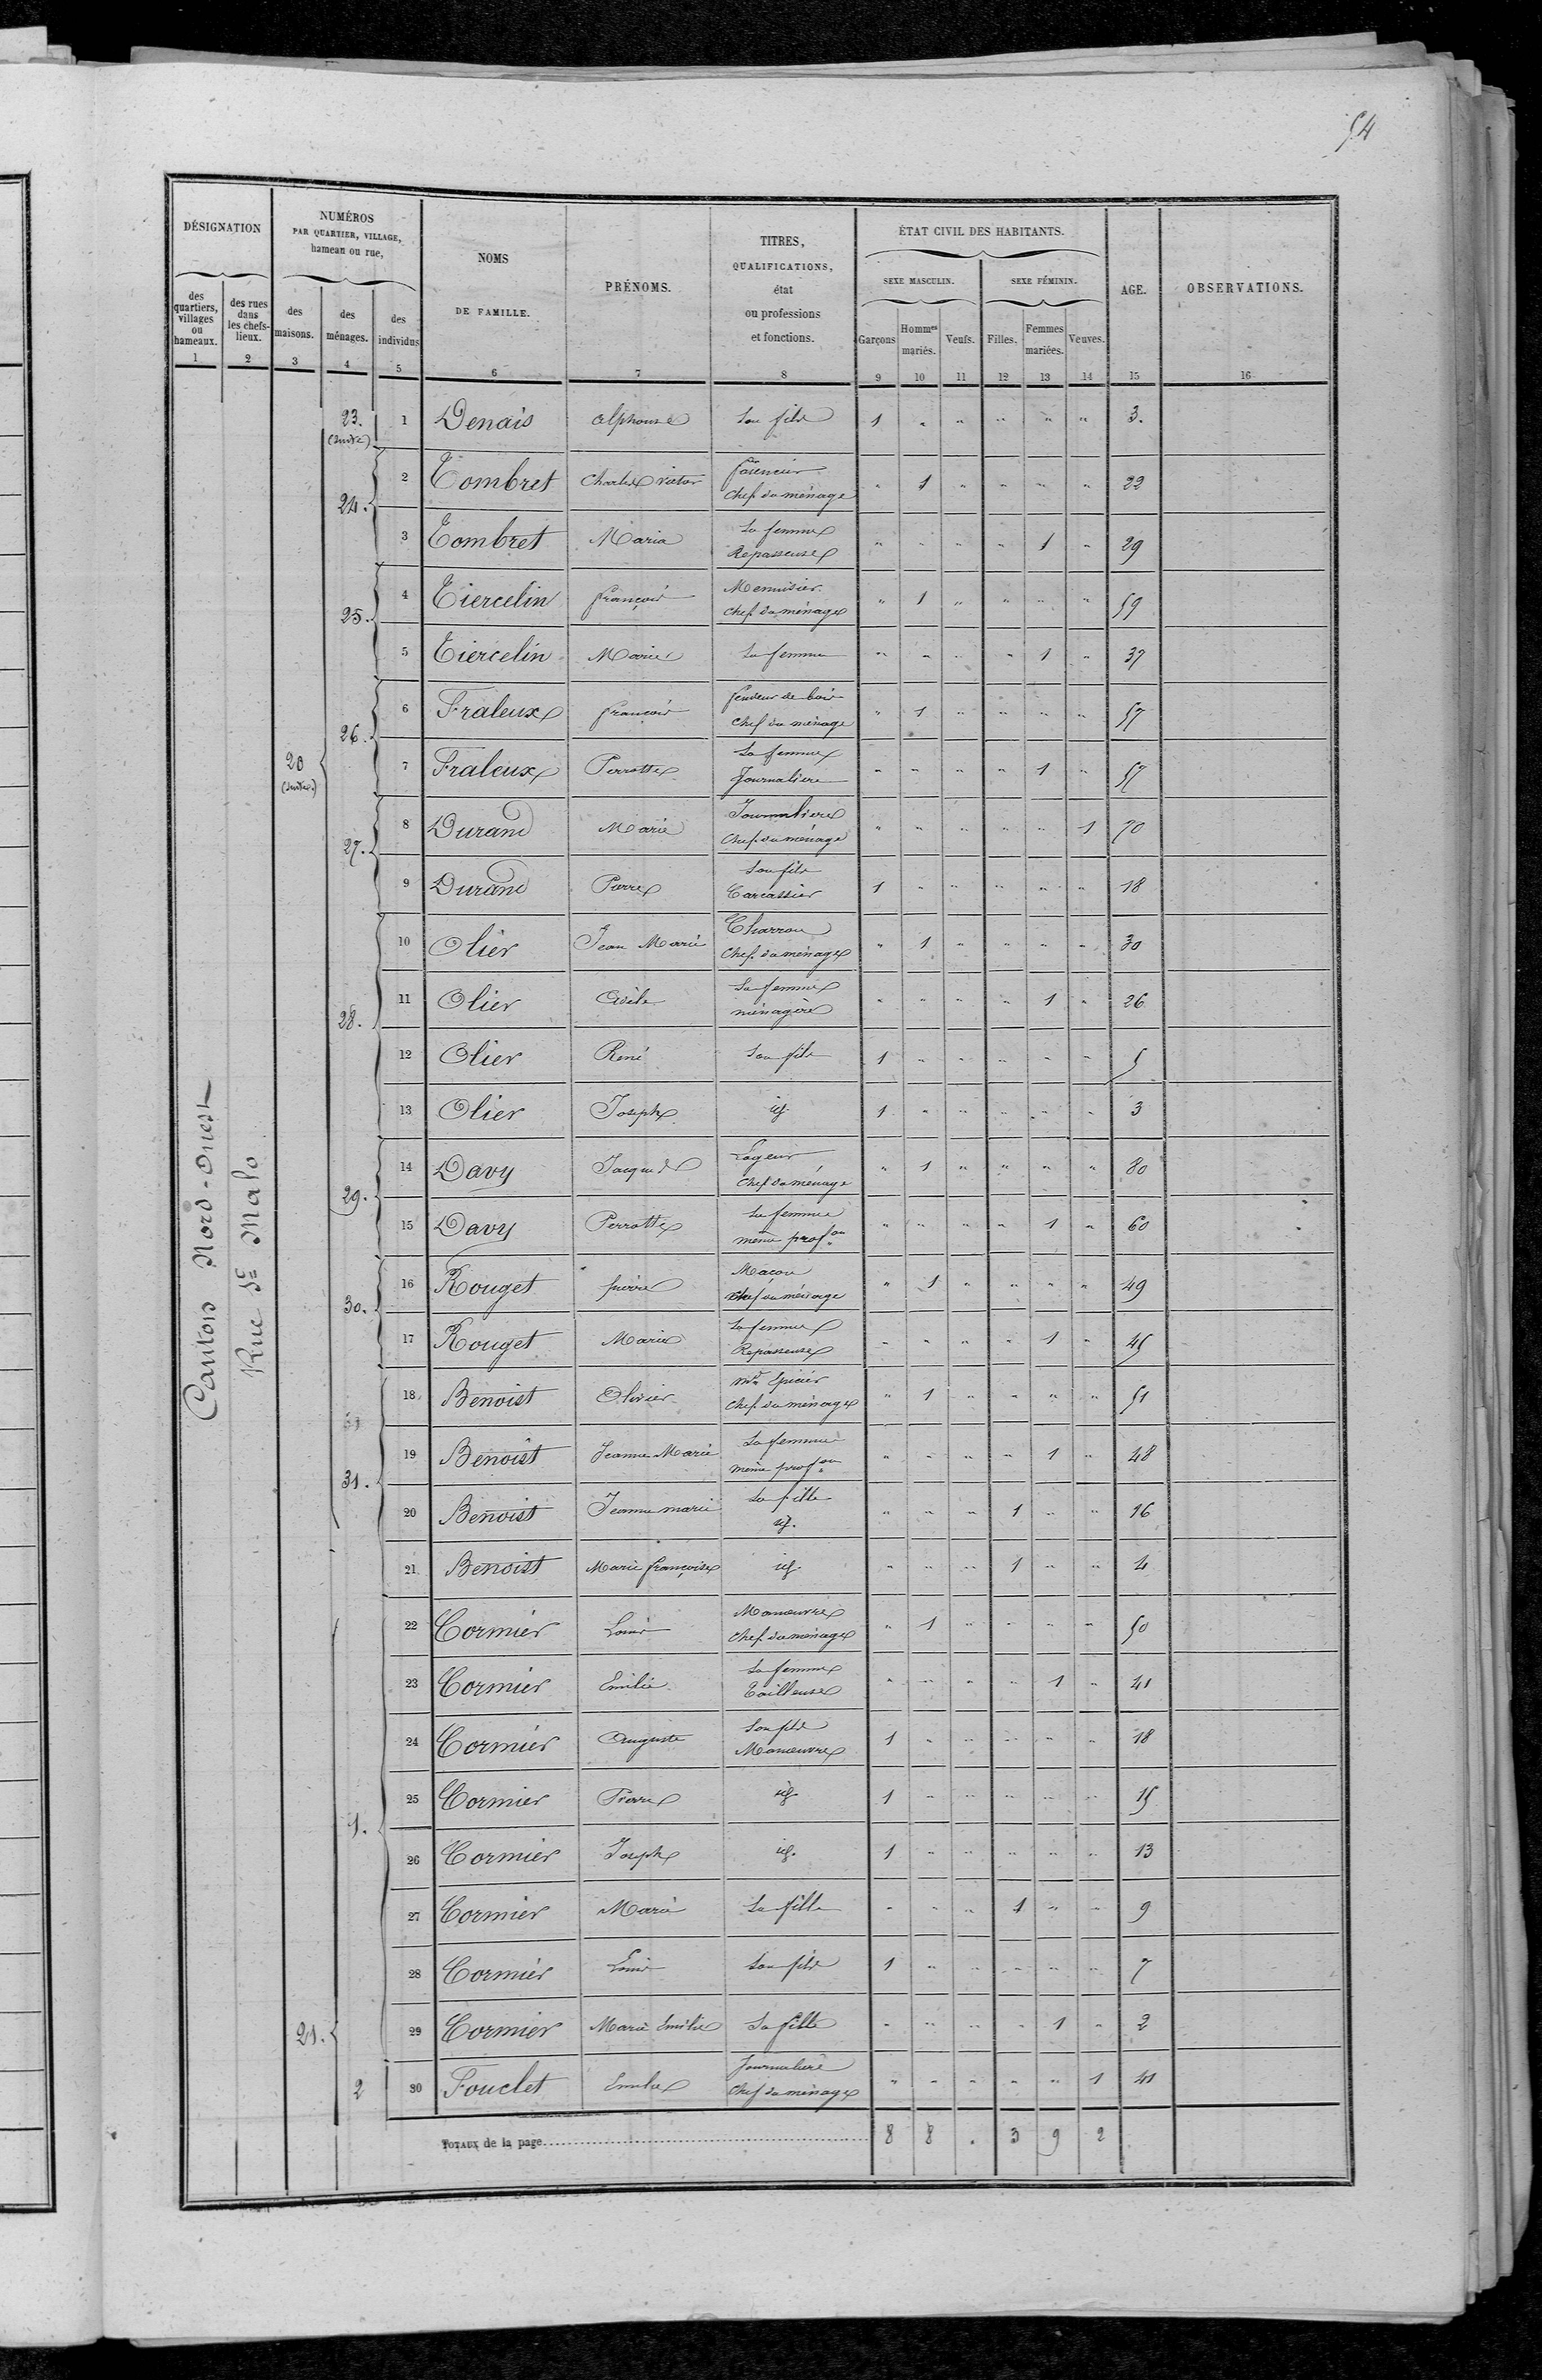 54
DÉSIGNATION
NUMÉROS
PAR QUARTIER, VILLAGE,
hameau ou rue,
NOMS
DE FAMILLE.
PRÉNOMS.
TITRES,
QUALIFICATIONS,
état
ou professions
et fonctions.
ÉTAT CIVIL DES HABITANTS.
SEXE MASCULIN.
SEXE FÉMININ.
AGE.
OBSERVATIONS.
des quartiers, villages ou hameaux.
des rues dans les chefs-lieux.
des maisons.
des ménages.
des individus
Garçons
Hommes mariés.
Veufs.
Filles.
Femmes mariées.
Veuves.
1 2 3 4 5 6 7 8 9 10 11 12 13 14 15 16
Canton Nord-Ouest
Rue St Malo
20 (suite)
23. (suite) 1 Denais Alphonse Son fils 1 " " " " " 3.
24. 2 Tombret Charles Victor Chef du ménage " 1 " " " " 22
3 Tombret Maria Sa femme Repasseuse " " " " 1 " 29
25. 4 Tiercelin François Menuisier Chef du ménage " 1 " " " " 59
5 Tiercelin Marie Sa femme " " " " 1 " 37
26. 6 Fraleux François fendeur de bois Chef du ménage " 1 " " " " 57
7 Fraleux Perrotte Sa femme Journalière " " " " 1 " 57
27. 8 Durand Marie Journalière Chef du ménage " " " " " 1 70
9 Durand Pierre Son fils Carcassier 1 " " " " " 18
28. 10 Olier Jean Marie Charron Chef du ménage " 1 " " " " 30
11 Olier Adèle Sa femme ménagère " " " " 1 " 26
12 Olier René Son fils 1 " " " " " 5
13 Olier Joseph id 1 " " " " " 3
29. 14 Davy Jacques Logeur Chef du ménage " 1 " " " " 80
15 Davy Perrotte Sa femme même prof.on " " " " 1 " 60
30. 16 Rouget pierre Maçon Chef du ménage " 1 " " " " 49
17 Rouget Marie Sa femme Repasseuse " " " " 1 " 45
31. 18 Benoist Olivier md Epicier Chef du ménage " 1 " " " " 51
19 Benoist Jeanne Marie Sa femme même prof.on " " " " 1 " 48
20 Benoist Jeanne marie Sa fille id. " " " 1 " " 16
21 Benoist Marie françoise id " " " 1 " " 4
21. 1. 22 Cormier Louis Manoeuvre Chef du ménage " 1 " " " " 50
23 Cormier Emilie Sa femme Tailleuse " " " " 1 " 41
24 Cormier Auguste Son fils Manoeuvre 1 " " " " " 18
25 Cormier Pierre id 1 " " " " " 15
26 Cormier Joseph id. 1 " " " " " 13
27 Cormier Marie Sa fille " " " 1 " " 9
28 Cormier Louis Son fils 1 " " " " " 7
29 Cormier Marie Emilie Sa fille " " " " 1 " 2
2 30 Fouclet Emilie Journalière Chef du ménage " " " " " 1 41
TOTAUX de la page 8 8 . 3 9 2